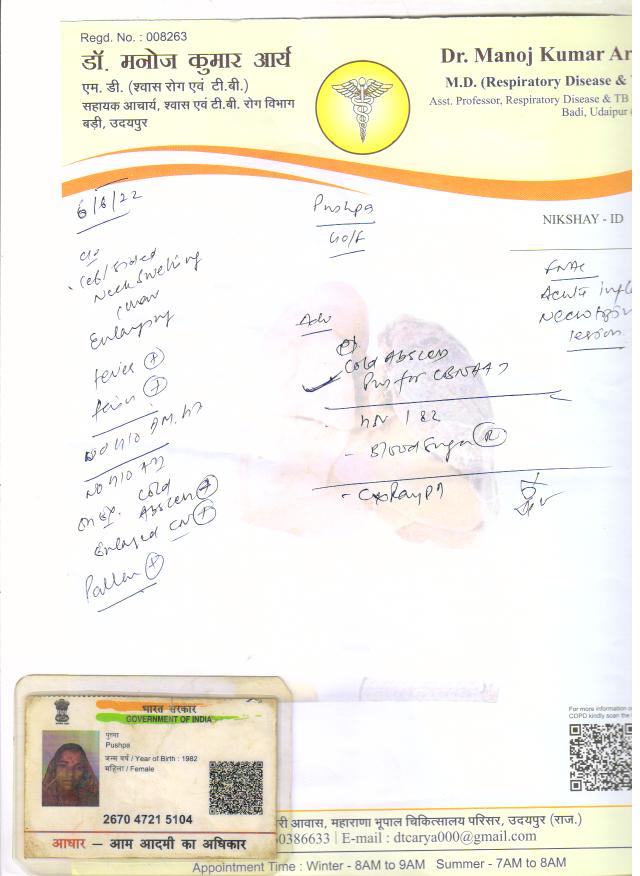 Regd. No. : 008263
डॉ. मनोज कुमार आर्य
एम. डी. (श्वास रोग एवं टी.बी.)
सहायक आचार्य, श्वास एवं टी.बी. रोग विभाग
बड़ी, उदयपुर
Dr. Manoj Kumar Ar
M.D. (Respiratory Disease &
Asst. Professor, Respiratory Disease & TB
Badi, Udaipur
6/8/22
Pushpa
40/F
NIKSHAY - ID
c/o
Left sided
Neck Swelling
Enlarging
fever +
No H/O
No H/O
cold
Abscess +
Enlarged LN +
Pallor +
Adv
Cold Abscess
Pus for CBNAAT
Blood Sugar R
FNAC
Acute
lesion
भारत सरकार
GOVERNMENT OF INDIA
पुश्पा
Pushpa
जन्म वर्ष / Year of Birth : 1982
महिला / Female
2670 4721 5104
आधार – आम आदमी का अधिकार
For more information o
COPD kindly scan the
री आवास, महाराणा भूपाल चिकित्सालय परिसर, उदयपुर (राज.)
0386633 | E-mail : dtcarya000@gmail.com
Appointment Time : Winter - 8AM to 9AM Summer - 7AM to 8AM